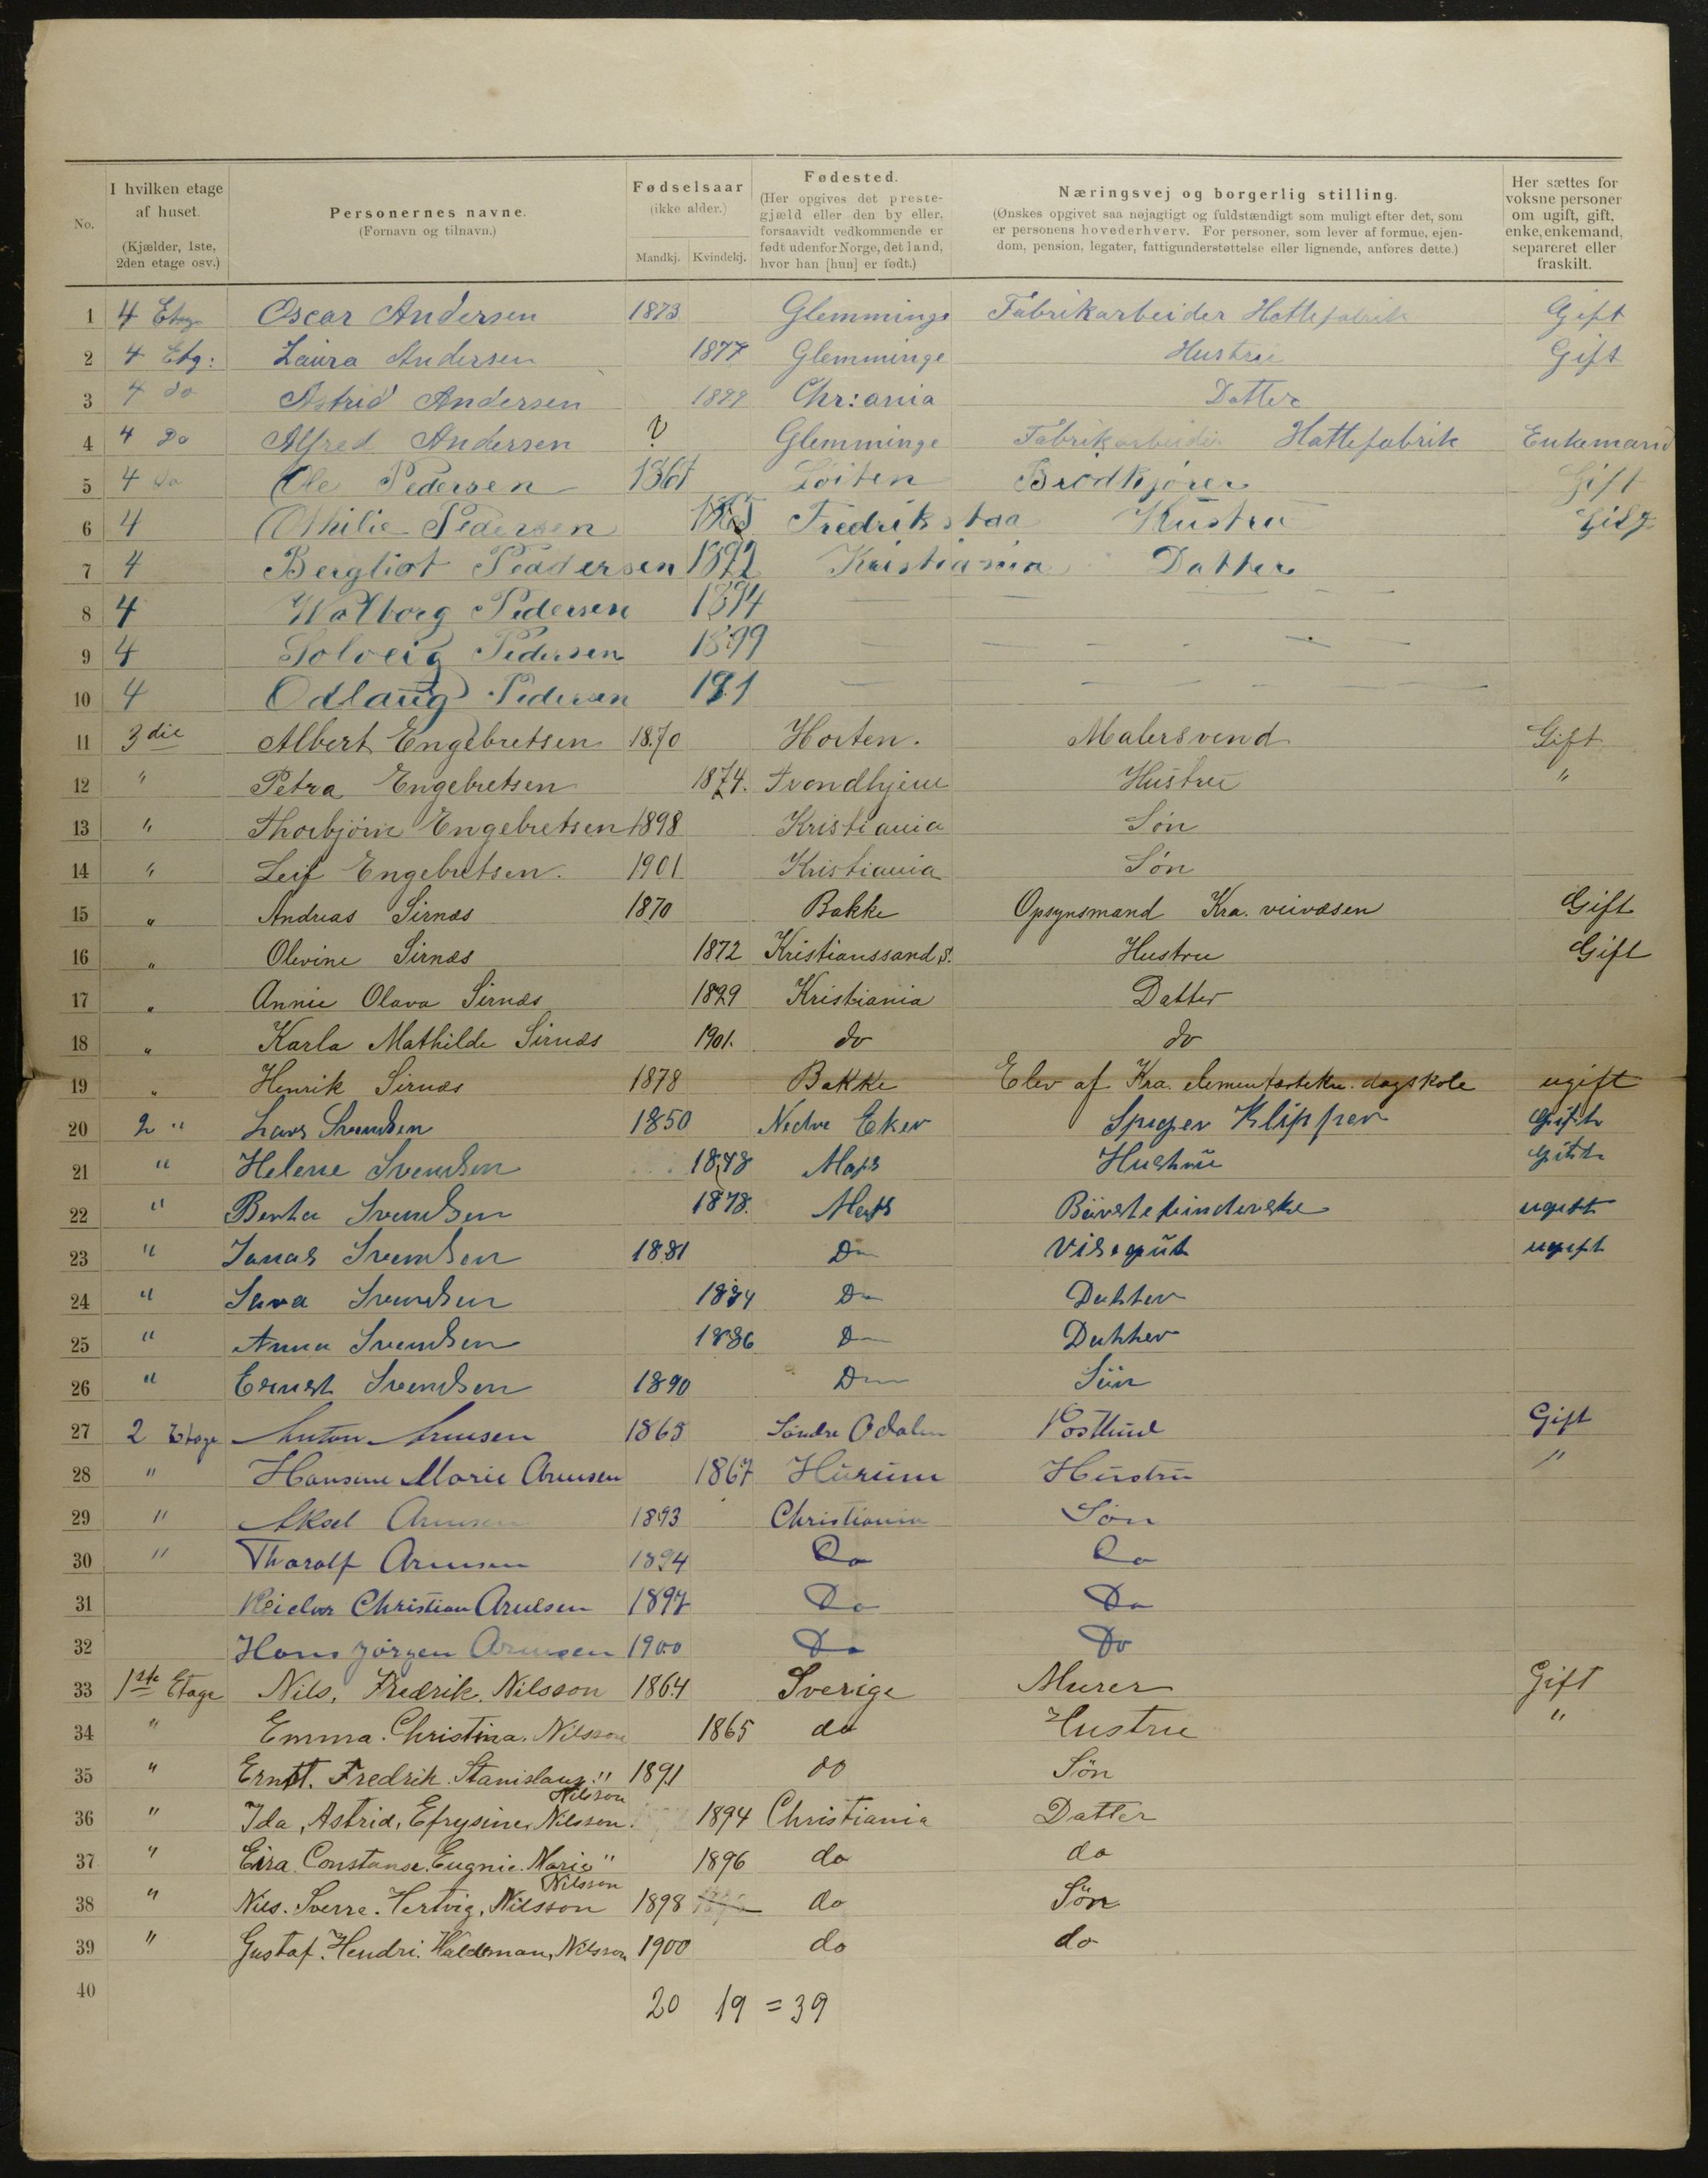 No. I hvilken etage af huset. (Kjælder, 1ste, 2den etage osv.) Personernes navne. (Fornavn og tilnavn.) Fødselsaar (ikke alder.) Mandkj. Kvindekj. Fødested. (Her opgives det prestegjæld eller den by eller, forsaavidt vedkommende er født udenfor Norge, det land, hvor han [hun] er født.) Næringsvej og borgerlig stilling. (Ønskes opgivet saa nøjagtigt og fuldstændigt som muligt efter det, som er personens hovederhverv. For personer, som lever af formue, ejendom, pension, legater, fattigunderstøttelse eller lignende, anføres dette.) Her sættes for voksne personer om ugift, gift, enke, enkemand, separeret eller fraskilt.
1 4 Etage Oscar Andersen 1873 Glemminge Fabrikarbeider Hattefabrik Gift
2 4 Etg: Laura Andersen 1877 Glemminge Hustru Gift
3 4 do Astrid Andersen 1899 Chr:ania Datter
4 4 Do Alfred Andersen ? Glemminge Fabrikarbeider Hattefabrik Enkemand
5 4 do Ole Pedersen 1867 Løiten Brødkjører Gift
6 4 Othilie Pedersen 1865 Fredrikstad Hustru Gift
7 4 Bergliot Peadersen 1892 Kristiania Datter
8 4 Walborg Pedersen 1894 — — — — —
9 4 Solveig Pedersen 1899 — — — — —
10 4 Odlaug Pedersen 19.1 — — — — —
11 3die Albert Engebretsen 1870 Horten. Malersvend Gift
12 " Petra Engebretsen 1874. Trondhjem Hustru "
13 " Thorbjørn Engebretsen 1898 Kristiania Søn
14 " Leif Engebretsen. 1901 Kristiania Søn
15 " Andreas Sirnæs 1870 Bakke Opsynsmand Kra. veivæsen Gift
16 " Olevine Sirnæs 1872 Kristianssand S. Hustru Gift
17 " Annie Olava Sirnæs 1899 Kristiania Datter
18 " Karla Mathilde Sirnæs 1901. do do
19 " Henrik Sirnæs 1878 Bakke Elev af Kra. elementærtekn. dagskole ugift
20 2 " Lars Svendsen 1850 Nedre Eker Spiger Klipper Gift
21 " Helene Svendsen 1848 Moss Hustru gift
22 " Berta Svendsen 1878. Moss Börstebinderske ugift
23 " Jonas Svendsen 1881 Do Visegut ugift
24 " Sara Svendsen 1884 Do Datter
25 " Anna Svendsen 1886 Do Datter
26 " Ernst Svendsen 1890 Do Sön
27 2 Etage Anton Arnesen 1865 Søndre Odalen Postbud Gift
28 " Hansine Marie Arnesen 1867 Hurum Hustru "
29 " Aksel Arnesen 1893 Christiania Søn
30 " Tharalf Arnesen 1894 Do Do
31 Reidar Christian Arnesen 1897 Do Do
32 Hans Jørgen Arnesen 1900 Do Do
33 1ste Etage Nils, Fredrik. Nilsson 1864 Sverige Murer Gift
34 " Emma. Christina. Nilsson 1865 do Hustru "
35 " Ernst. Fredrik. Stanislaus " Nilsson 1891 do Sön
36 " Ida, Astrid, Efrysine, Nilsson. 1894 Christiania Datter
37 " Eira. Constanse. Eugnie. Marie " Nilsson 1896 do do
38 " Nils. Sverre. Hertvig, Nilsson 1898 do Sön
39 " Gustaf. Hendri. Haldeman, Nilsson 1900 do do
40
20 19 = 39